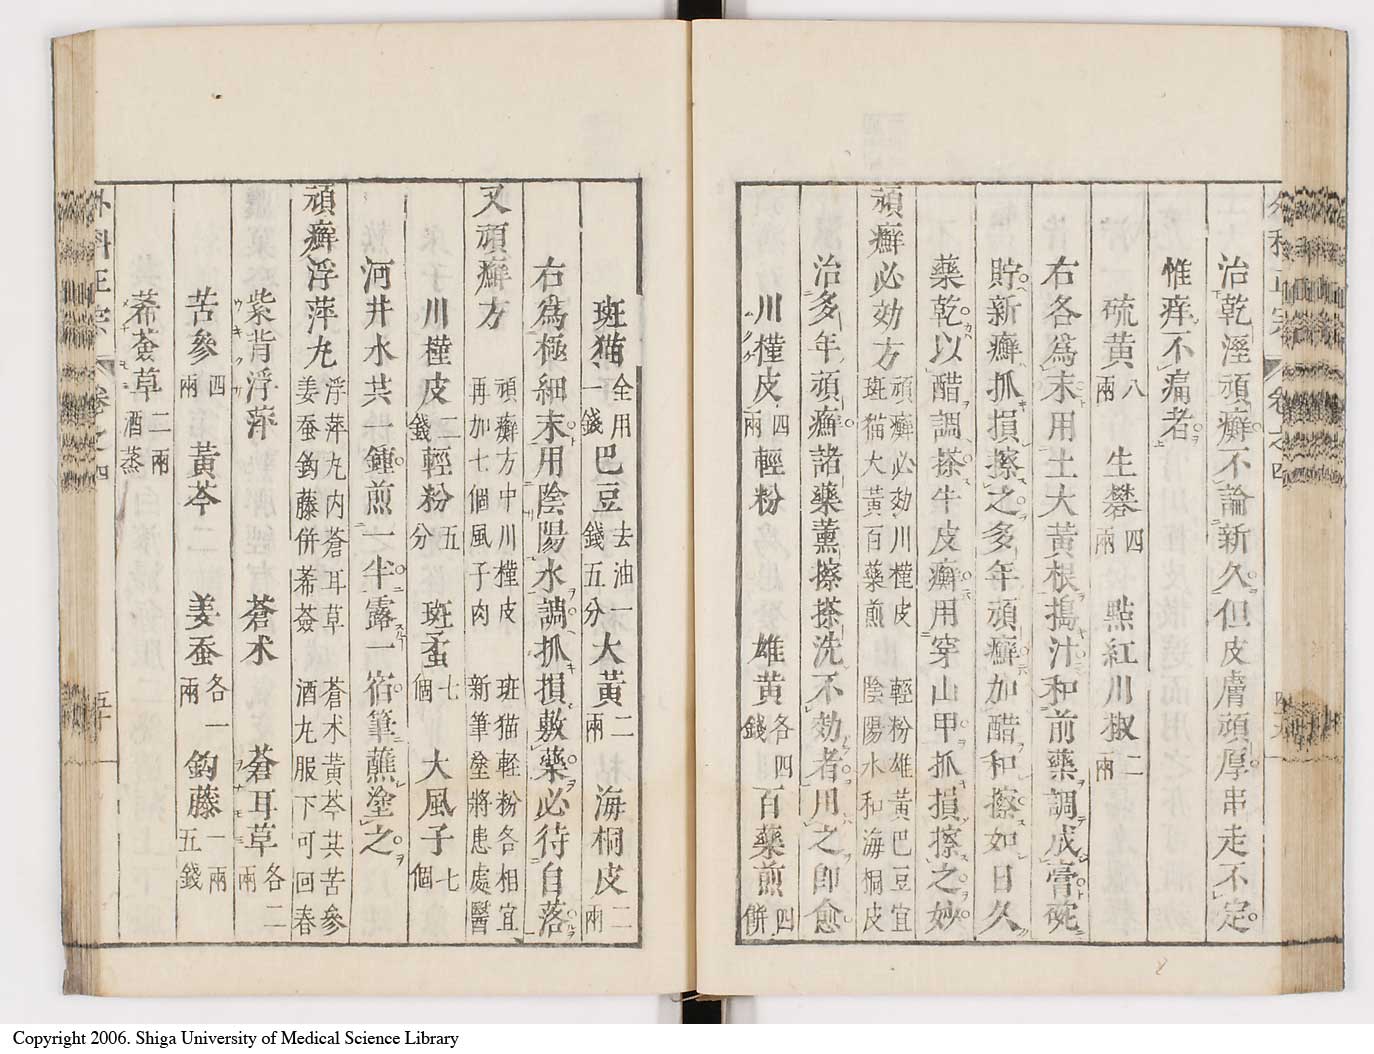 治乾溼頑癬不論新久但皮膚頑厚串走不定
惟痒不痛者
硫黃八兩 生礬四兩 點紅川椒二兩
右各爲末用土大黃根搗汁和前藥調成膏碗
貯新癬抓損擦之多年頑癬加醋和擦如日久
藥乾以醋調搽牛皮癬用穿山甲抓損擦之妙
頑癬必効方 頑癬必効川槿皮 輕粉雄黃巴豆宜
斑猫大黃百藥煎 陰陽水和海桐皮
治多年頑癬諸藥薰擦搽洗不効者用之即愈
川槿皮四兩 輕粉 雄黃各四錢 百藥煎四餅
斑猫全用一錢 巴豆去油一錢五分 大黃二兩 海桐皮二兩
右爲極細末用陰陽水調抓損敷藥必待自落
又頑癬方 頑癬方中川槿皮 班猫軽粉各相宜
再加七個風子肉 新筆塗將患處醫
川槿皮二錢 輕粉五分 斑蝥七個 大風子七個
河井水共一鍾煎一半露一宿筆蘸塗之
頑癬浮萍丸 浮萍丸内蒼耳草 蒼术黃芩共苦參
姜蚕鈎藤併莃薟 酒丸服下可回春
紫背浮萍 蒼术 蒼耳草各二兩
苦參四兩 黃芩二兩 姜蚕各一兩 鈎藤一兩五錢
莃薟草二兩酒蒸
外科正宗 卷之四 五十
Copyright 2006. Shiga University of Medical Science Library